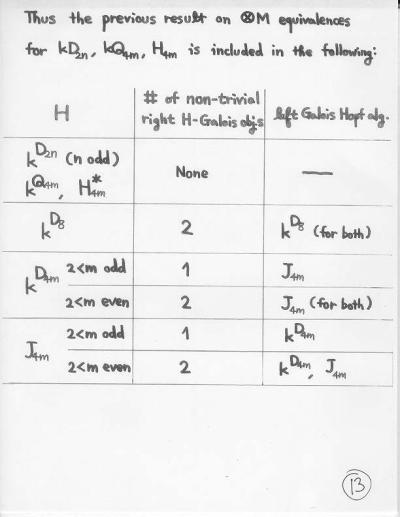 Thus the previous result on ⊗M equivalences
for kD₂ₙ, kQ₄ₘ, H₄ₘ is included in the following:
H | # of non-trivial right H-Galois objs | left Galois Hopf alg.
k^D₂ₙ (n odd)
k^Q₄ₘ, H₄ₘ* | None | —
k^D₈ | 2 | k^D₈ (for both)
k^D₄ₘ | 2<m odd | 1 | J₄ₘ
2<m even | 2 | J₄ₘ (for both)
J₄ₘ | 2<m odd | 1 | k^D₄ₘ
2<m even | 2 | k^D₄ₘ, J₄ₘ
13